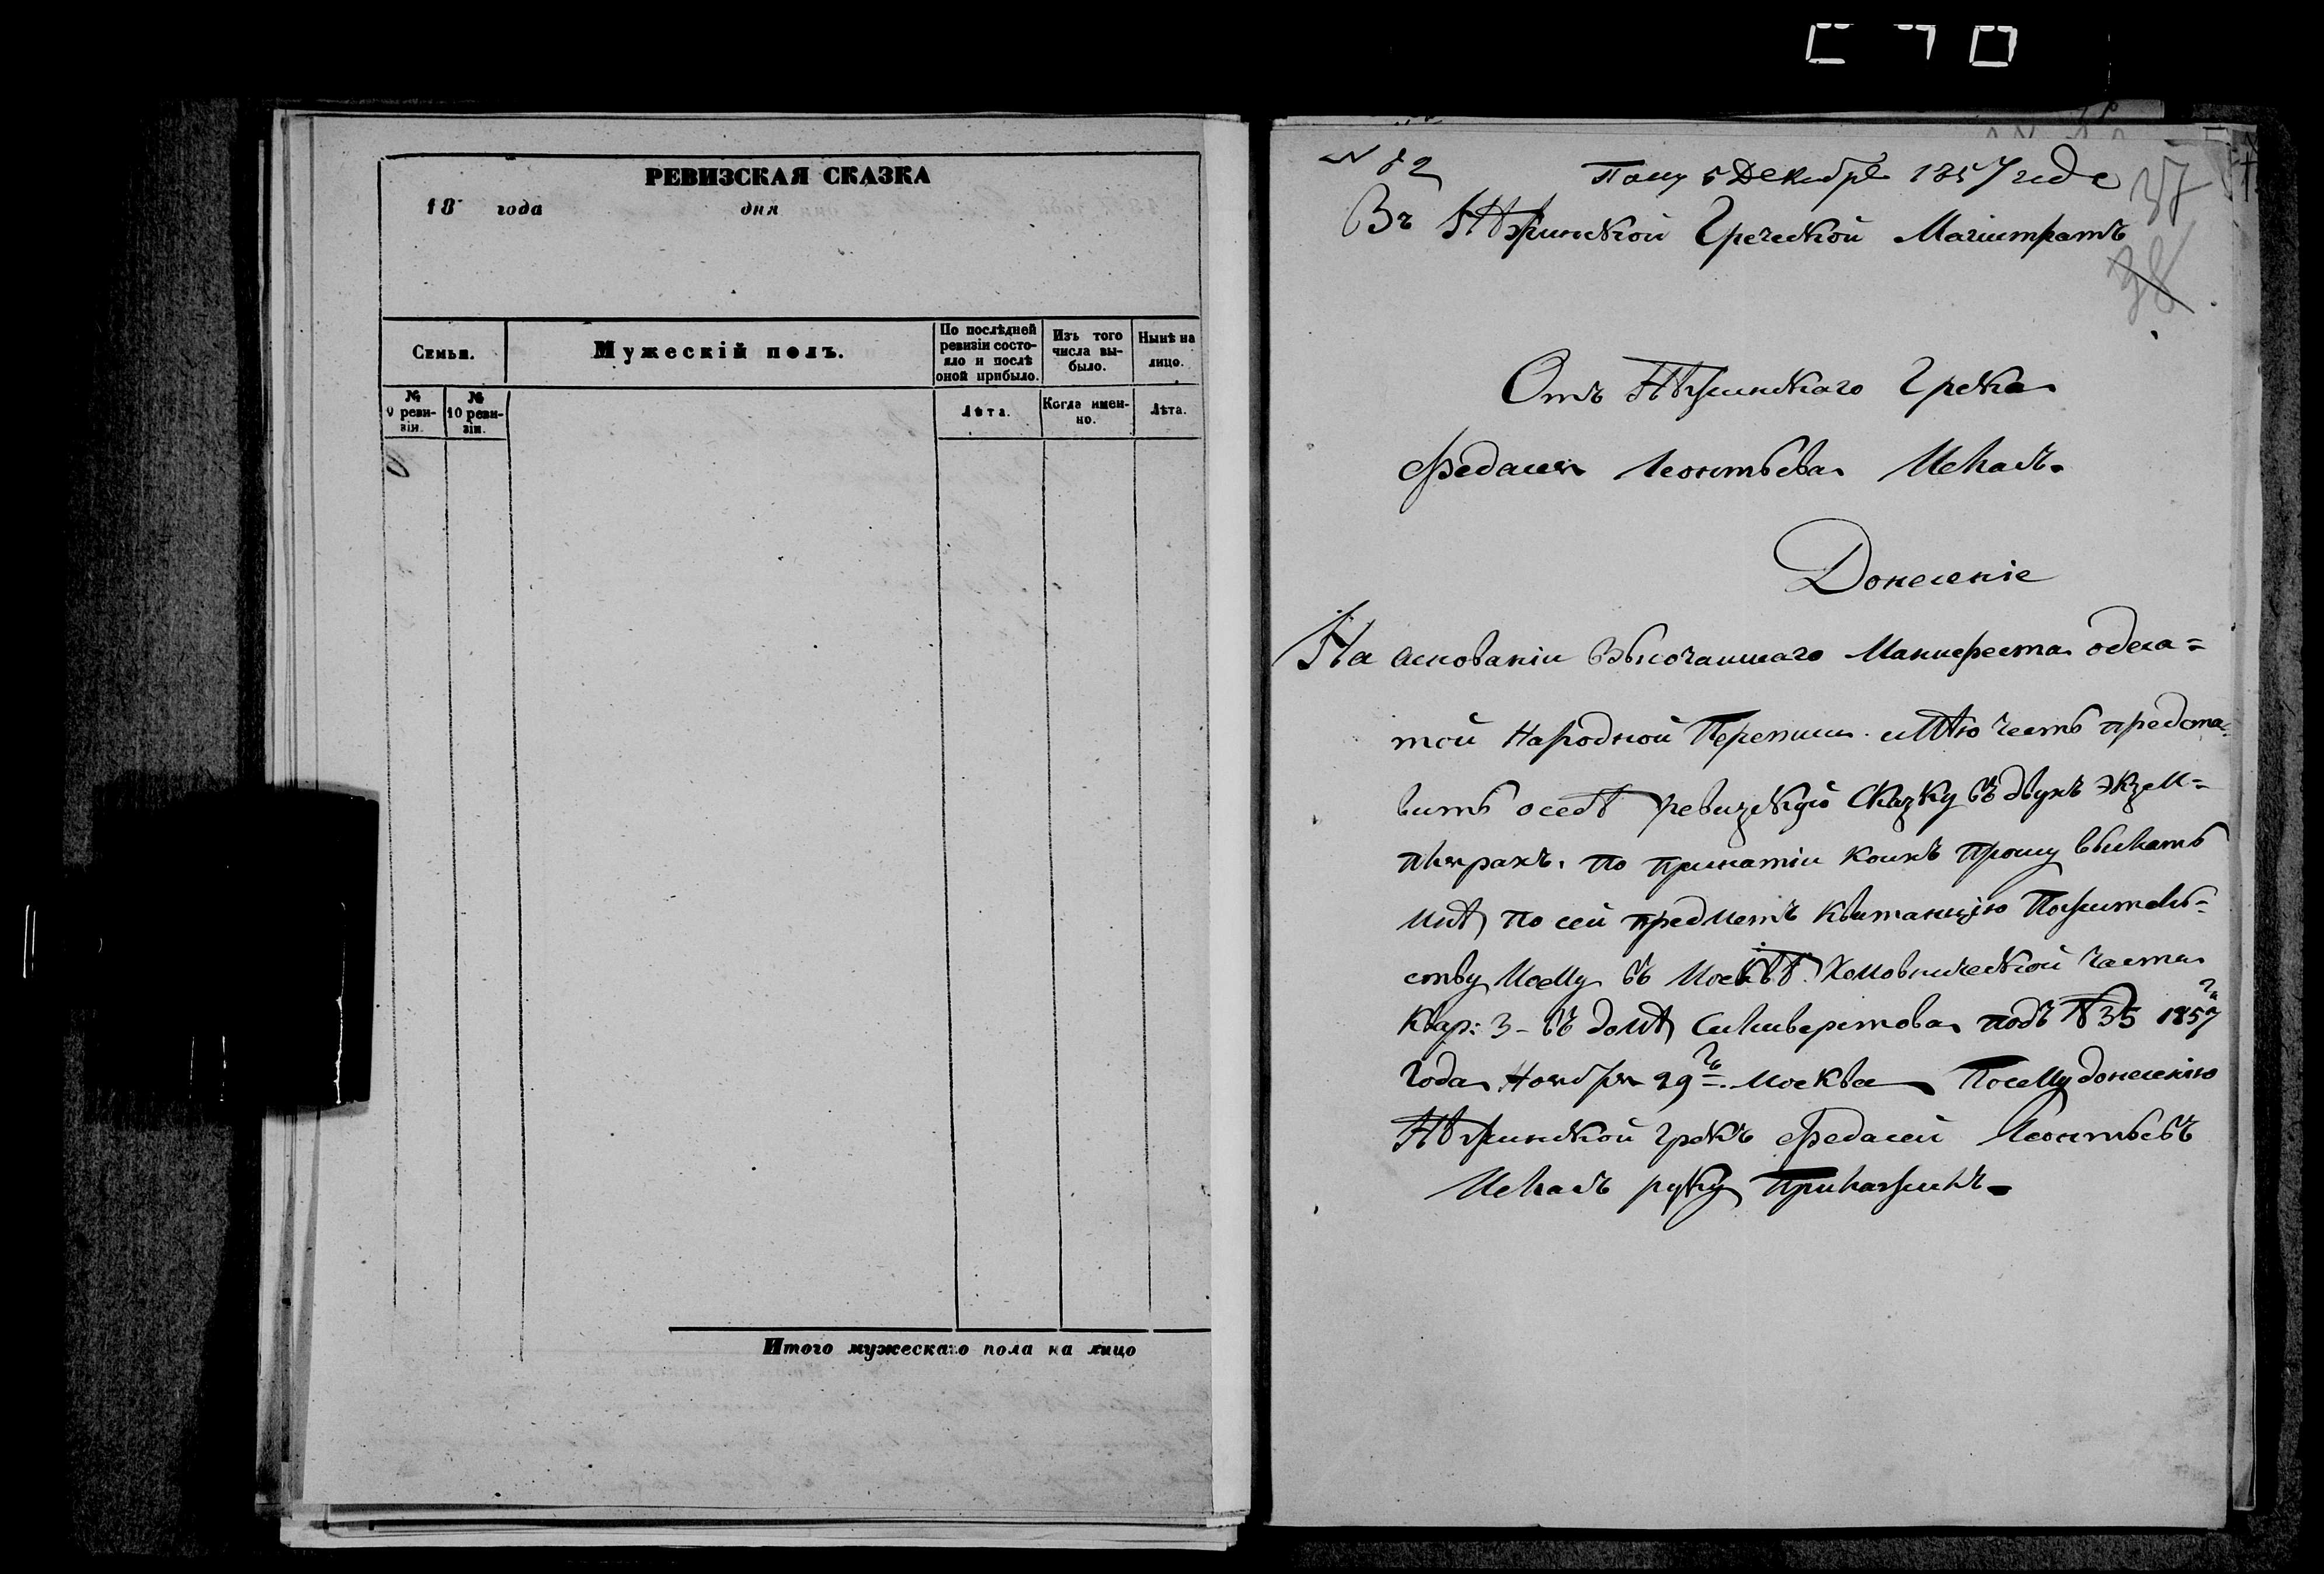 РЕВИЗСКАЯ СКАЗКА
18 года дня
Семьи.
Мужескій полъ.
По послѣдней ревизіи состояло и послѣ оной прибыло.
Изъ того числа выбыло.
Нынѣ на лицо.
№ 9 ревизіи.
№ 10 ревизіи.
Лѣта.
Когда именно.
Лѣта.
Итого мужескаго пола на лицо
№ 82 Полу 5 Декабре 1857 года
37
38
Въ Нѣжинской Греческой Магистратъ
Отъ Нѣжинскаго Грека
Федасея Леонтьева
Донесеніе
На аснованіи Высочаишаго Манифеста одеся=
той Народной Переписи имѣю честь предста
вить осебѣ ревизскую Сказку въ двухъ экзем=
плярахъ. по принатіи коихъ прошу выслать
мнѣ по сей предметъ квитанцію Пожитель=
ству моему въ Москвѣ Хомовнической части
Квар: 3 – въ домѣ Сильверстова подъ № 35 1857 го
Года Ноября 29 го. Москва Посему донесенію
Нѣжинской грекъ Федасей Леонтьевъ
руку Приложилъ